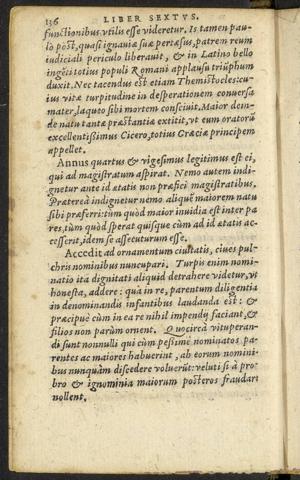 136 LIBER SEXTVS.
functionibus vtilis esse videretur. Is tamen pau-
lò pòst, quasi ignauiæ suæ pertæsus, patrem reum
iudiciali periculo liberauit, & in Latino bello
ingẽti totius populi Romani applausu triũphum
duxit. Nec tacendus est etiam Themistocles: cu-
ius vitæ turpitudine in desperationem conuersa
mater, laqueo sibi mortem consciuit. Maior dein-
de natu tantæ præstantiæ extitit, vt eum oratorũ
excellentißimus Cicero, totius Græciæ principem
appellet.
Annus quartus & vigesimus legitimus est ei,
qui ad magistratum aspirat. Nemo autem indi-
gnetur ante id ætatis non præfici magistratibus.
Prætereà indignetur nemo aliquẽ maiorem natu
sibi præferri: tùm quòd maior inuidia est inter pa
res, tùm quòd sperat quisque cùm ad id ætatis ac-
cesserit, idem se assecuturum esse.
Accedit ad ornamentum ciuitatis, ciues pul-
chris nominibus nuncupari. Turpis enim nomi-
natio ità dignitati aliquid detrahere videtur, vt
honesta, addere: quà in re, parentum diligentia
in denominandis infantibus laudanda est: &
præcipuè cùm in ea re nihil impendij faciant, &
filios non parùm ornent. Quocircà vituperan-
di sunt nonnulli qui cùm peßimè nominatos pa-
rentes ac maiores habuerint, ab eorum nomini-
bus nunquàm discedere voluerũt: veluti si à pro-
bro & ignominia maiorum posteros fraudari
nollent.